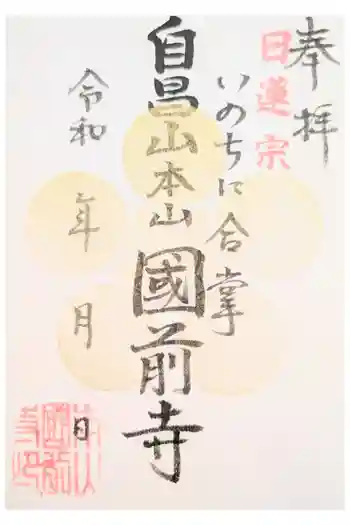 奉拝
日蓮宗
いのちに合掌
自昌山本山國前寺
令和 年 月 日
本山國前寺印